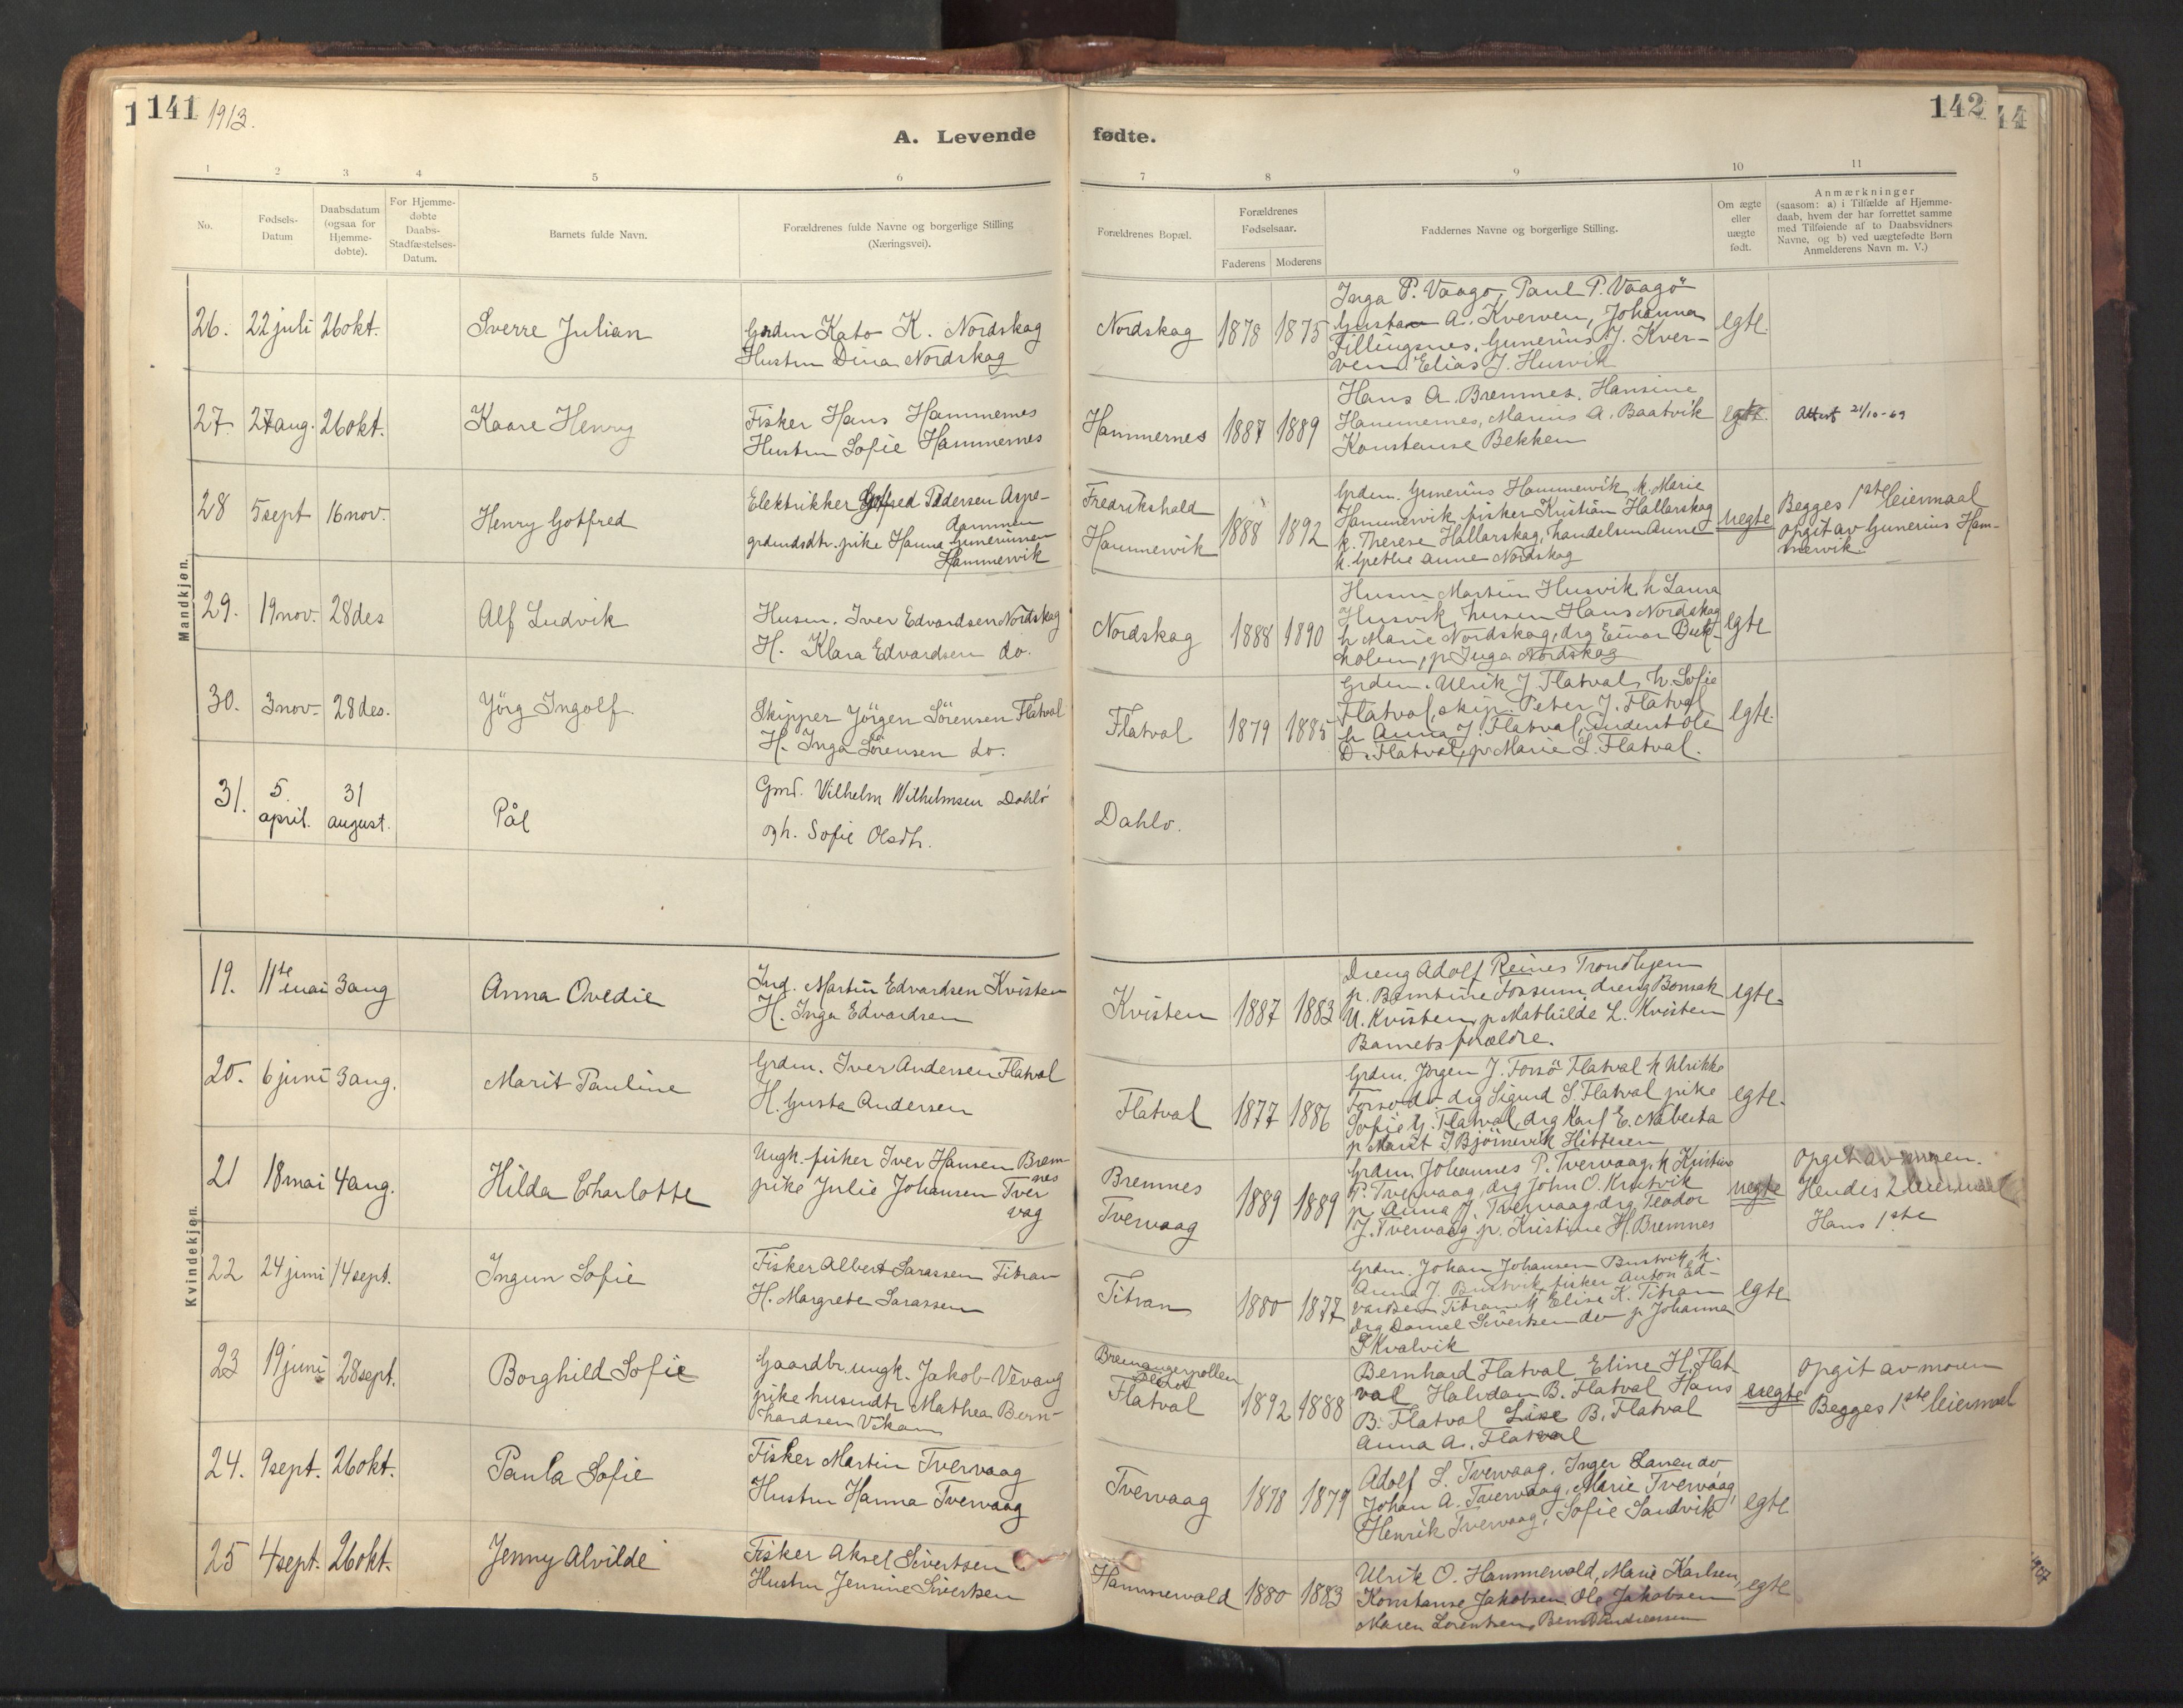 141 1913.
142
44
A. Levende fødte.
1 2 3 4 5 6 7 8 9 10 11
No.
Fødsels-
Datum
Daabsdatum
(ogsaa for
Hjemme-
døbte).
For Hjemme-
døbte
Daabs-
Stadfæstelses-
Datum.
Barnets fulde Navn.
Forældrenes fulde Navne og borgerlige Stilling
(Næringsvei).
Forældrenes Bopæl.
Forældrenes
Fødselsaar.
Faderens Moderens
Faddernes Navne og borgerlige Stilling.
Om ægte
eller
uægte
født.
Anmærkninger
(saasom: a) i Tilfælde af Hjemme-
daab, hvem der har forrettet samme
med Tilføiende af to Daabsvidners
Navne, og b) ved uægtefødte Børn
Anmelderens Navn m. V.)
Mandkjøn.
26. 22 juli 26 okt.
Sverre Julian
Grdm Kato K. Nordskag
Hustru Dina Nordskag
Nordskag 1878 1875
Inga P. Vaagö, Paul P. Vaagö
Gustav A. Kverven, Johanna
Fillingsnes, Gunerius J. Kver-
ven Elias J. Husvik
egte.
27. 27 aug. 26 okt.
Kaare Henry
Fisker Hans Hammernes
Hustru Sofie Hammernes
Hammernes 1887 1889
Hans A. Bremnes, Hansine
Hammernes, Marius A. Baatvik
Konstanse Bekken
egte.
Attest 21/10-69
28 5 sept 16 nov.
Henry Gotfred
Elektrikker Gotfred Pedersen Aspe-
dammen
grdmdsdtr. pike Hanna Gunerussen
Hammervik
Fredrikshald
Hammervik
1888 1892
Grdm. Gunerius Hammervik, k. Marie
Hammervik, fisker Kristian Hallarskag
k. Therese Hallarskag, handelsm Anne
k. Grethe Anne Nordskag
uegte
Begges 1ste leiermaal
opgit av Gunerius Ham-
mervik.
29. 19 nov. 28 des
Alf Ludvik
Husm. Iver Edvardsen Nordskag
H. Klara Edvardsen do.
Nordskag 1888 1890
Husm Martin Husvik h Laura
Husvik, husm Hans Nordskag
h Marie Nordskag, drg Einar Buk-
holm, p. Inga Nordskag
egte
30. 3 nov. 28 des.
Yörg Ingolf
Skipper Jörgen Sörensen Flatval
H. Inga Sörensen do.
Flatval 1879 1885
Grdm. Ulrik J. Flatval, h. Sofie
Flatval, skip. Peter J. Flatval
h Anna J. Flatval, student Ole
D. Flatval, p. Marie S. Flatval.
egte.
31. 5. april. 31 august.
Pål
Gmd. Vilhelm Wilhelmsen Dahlö
og h. Sofie Olsdtr.
Dahlö.
Kvindekjøn.
19. 11te mai 3 aug
Anna Ovedie
Ind. Martin Edvardsen Kvisten
H. Inga Edvardsen
Kvisten 1887 1883
Dreng Adolf Reines Trondhjem
p. Berntine Forsum, dreng Bonsak
U. Kvisten, p Mathilde L. Kvisten
Barnets forældre.
egte.
20. 6 juni 3 aug.
Marit Pauline
Grdm. Iver Andersen Flatval
H. Gusta Andersen
Flatval 1877 1886
Grdm. Jörgen J. Forsö Flatval h Ulrikke
Forsö do drg Sigurd S. Flatval pike
Sofie G. Flatval, drg Karl E. Nabeita
p Marit J Björnevik Hitteren
egte.
21 18 mai 4 aug.
Hilda Charlotte
Ungk. fisker Iver Hansen Brem-
nes
pike Julie Johansen Tver
vag
Bremnes
Tvervaag
1889 1889
Grdm. Johannes P. Tvervaag, k Kristine
P. Tvervaag, drg John O. Krutvik
p. Anna J. Tvervaag drg Teodor
J. Tvervaag p. Kristine H. Bremnes
uegte
Opgit av moren.
Hendes 2 leiermaal
Hans 1ste
22 24 juni 14 sept.
Ingun Sofie
Fisker Albert Larassen Titran
H. Margrete Larassen
Titran 1880 1877
Grdm. Johan Johansen Bustvik, k.
Anna J. Bustvik, fisker Anton Ed-
vardsen Titran k Elise K. Titran
drg Daniel Sivertsen do p Johanna
S Kvalvik
egte
23 19 juni 28 sept.
Borghild Sofie
Gaardbr. ungk. Jakob Vevang
pike husmdtr Mathea Bern-
hardsen Vikan
Bremangerpollen
Flatval
1892 1888
Bernhard Flatval Eline H. Flat
val Halvdan B. Flatval Hans
B. Flatval Lise B. Flatval
Anna A. Flatval
uegte
Opgit av moren
Begges 1ste leiermaal
24. 9 sept. 26 okt.
Paula Sofie
Fisker Martin Tvervaag
Hustru Hanna Tvervaag
Tvervaag 1878 1879
Adolf L. Tvervaag, Inger Larsen do
Johan A. Tvervaag, Marie Tvervaag,
Henrik Tvervaag, Sofie Sandvik
egte
25 4 sept. 26 okt.
Jenny Alvilde
Fisker Aksel Sivertsen
Hustru Jensine Sivertsen
Hammervold 1880 1883
Ulrik O. Hammervold, Marie Karlsen,
Konstanse Jakobsen, Ole Jakobsen
Maren Lorentsen, Bernt Andreassen
egte